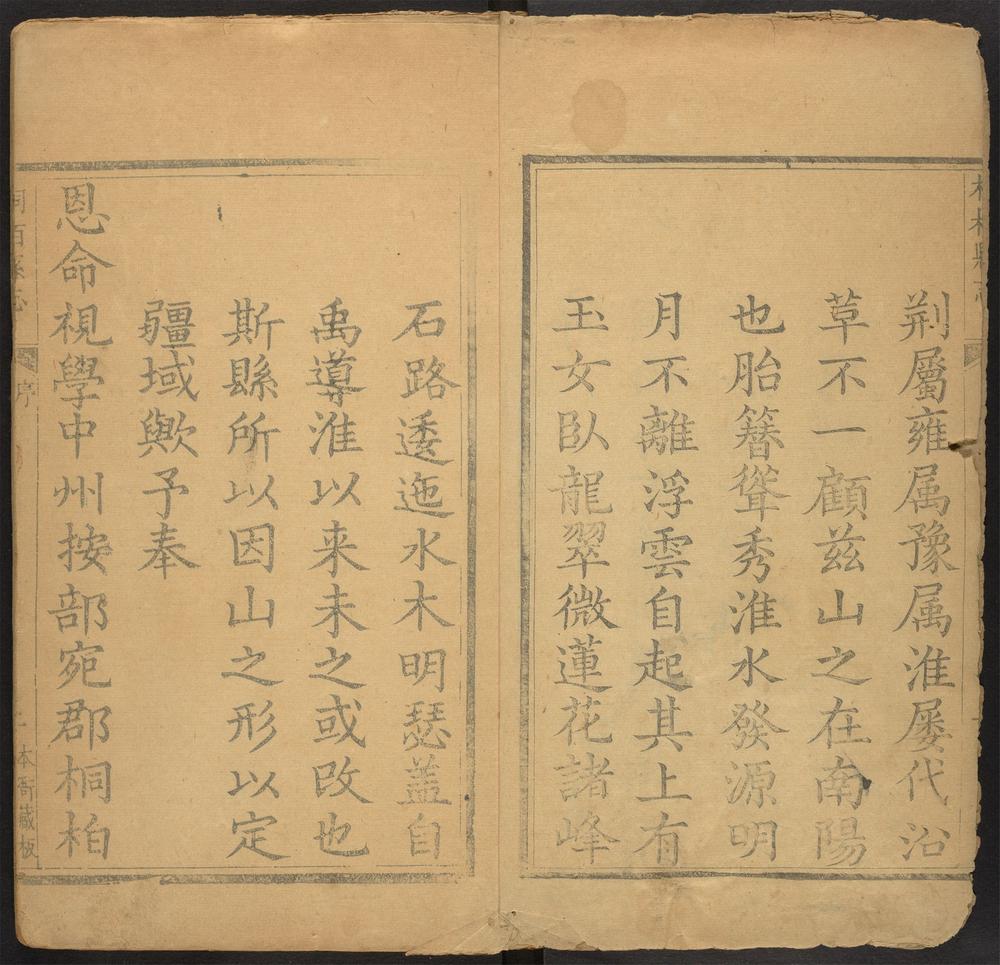 荆屬雍属豫属淮屡代沿
草不一顧兹山之在南陽
也胎簪聳秀淮水發源明
月不離浮雲自起其上有
玉女臥龍翠微蓮花諸峰
石路逶迤水木明瑟盖自
禹導淮以来未之或改也
斯縣所以因山之形以定
疆域歟予奉
恩命視學中州按部宛郡桐柏
桐百縣志
序
二
本衙藏板